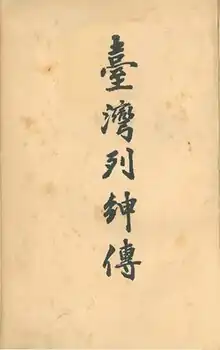 臺灣列紳傳